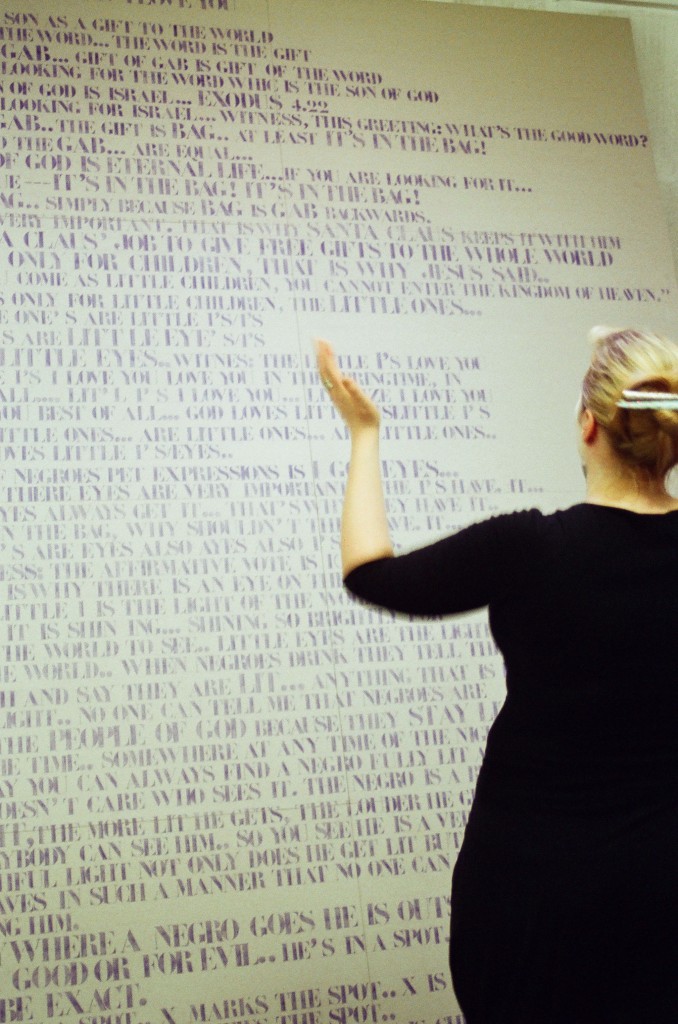 LOVE YOU
SON AS A GIFT TO THE WORLD
THE WORD... THE WORD IS THE GIFT
GAB... GIFT OF GAB IS GIFT OF THE WORD
LOOKING FOR THE WORD WHIC IS THE SON OF GOD
N OF GOD IS ISRAEL... EXODUS 4.22
LOOKING FOR ISRAEL... WITNESS, THIS GREETING: WHAT'S THE GOOD WORD?
GAB.. THE GIFT IS BAG.. AT LEAST IT'S IN THE BAG!
O THE GAB... ARE EQUAL...
OF GOD IS ETERNAL LIFE...IF YOU ARE LOOKING FOR IT...
UE---IT'S IN THE BAG! IT'S IN THE BAG!
AG.. SIMPLY BECAUSE BAG IS GAB BACKWARDS.
VERY IMPORTANT. THAT IS WHY SANTA CLAUS KEEPS IT WITH HIM
A CLAUS' JOB TO GIVE FREE GIFTS TO THE WHOLE WORLD
ONLY FOR CHILDREN, THAT IS WHY JESUS SAID..
U COME AS LITTLE CHILDREN, YOU CANNOT ENTER THE KINGDOM OF HEAVEN."
S ONLY FOR LITTLE CHILDREN, THE LITTLE ONES...
E ONE'S ARE LITTLE I'S/I'S
S ARE LITTLE EYE' S/I'S
LITTLE EYES.. WITNES: THE LITTLE I'S LOVE YOU
E I'S I LOVE YOU LOVE YOU IN THE SPRINGTIME, IN
ALL.... LIT' L I'S I LOVE YOU... I LOVE YOU
OU BEST OF ALL... GOD LOVES LITTLE I'S
ITTLE ONES... ARE LITTLE ONES... ARE LITTLE ONES..
OVES LITTLE I' S/EYES..
F NEGROES PET EXPRESSIONS IS I GO EYES...
THERE EYES ARE VERY IMPORTANT THE I'S HAVE. IT...
YES ALWAYS GET IT... THAT'S WHY THEY HAVE IT..
N THE BAG, WHY SHOULDN'T THE HAVE. IT...
'S ARE EYES ALSO AYES ALSO I'S
ESS: THE AFFIRMATIVE VOTE IS
IS WHY THERE IS AN EYE ON TH
LITTLE I IS THE LIGHT OF THE WOR
IT IS SHIN ING... SHINING SO BRIGHTLY FOR
THE WORLD TO SEE.. LITTLE EYES ARE THE LIGH
E WORLD.. WHEN NEGROES DRINK THEY TELL TH
H AND SAY THEY ARE LIT... ANYTHING THAT IS
LIGHT.. NO ONE CAN TELL ME THAT NEGROES ARE
THE PEOPLE OF GOD BECAUSE THEY STAY LI
BE TIME.. SOMEWHERE AT ANY TIME OF THE NIG
AY YOU CAN ALWAYS FIND A NEGRO FULLY LIT A
DOESN'T CARE WHO SEES IT. THE NEGRO IS A B
IT, THE MORE LIT HE GETS, THE LOUDER HE G
YBODY CAN SEE HIM.. SO YOU SEE HE IS A VE
HFUL LIGHT NOT ONLY DOES HE GET LIT BUT
AVES IN SUCH A MANNER THAT NO ONE CAN
NG HIM.
YWHERE A NEGRO GOES HE IS OUTS
GOOD OR FOR EVIL.. HE'S IN A SPOT.
BE EXACT.
A SPOT.. X MARKS THE SPOT.. X IS